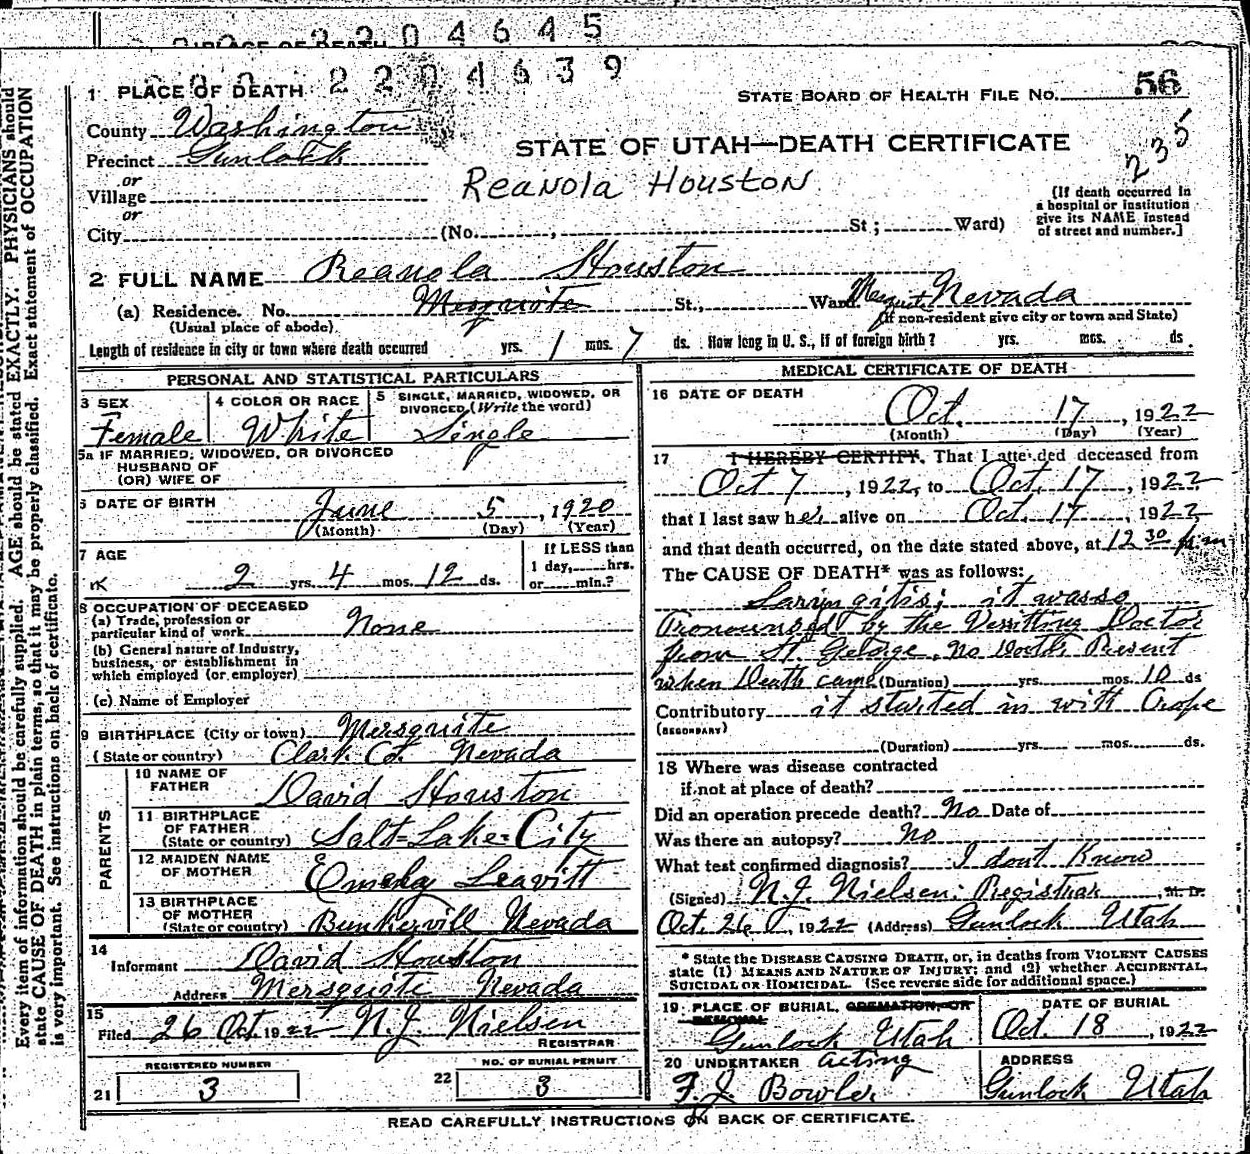 2204645
PLACE OF DEATH
2204639
1 PLACE OF DEATH
STATE BOARD OF HEALTH FILE NO. 56
County Washington
235
Precinct Gunlock
STATE OF UTAH—DEATH CERTIFICATE
or
Village
Reanola Houston
(If death occurred in
a hospital or institution
give its NAME instead
of street and number.]
or
City (No. , St; Ward)
2 FULL NAME Reanola Houston
(a) Residence. No. Mesquite St., Ward Mesquit Nevada
(Usual place of abode)
(If non-resident give city or town and State)
Length of residence in city or town where death occurred yrs. 1 mos. 7 ds. How long in U. S., if of foreign birth? yrs. mos. ds.
PERSONAL AND STATISTICAL PARTICULARS
3 SEX
Female
4 COLOR OR RACE
White
5 SINGLE, MARRIED, WIDOWED, OR
DIVORCED (Write the word)
Single
5a IF MARRIED, WIDOWED, OR DIVORCED
HUSBAND OF
(OR) WIFE OF
6 DATE OF BIRTH June 5, 1920
(Month) (Day) (Year)
7 AGE
2 yrs. 4 mos. 12 ds.
If LESS than
1 day, hrs.
or min.?
8 OCCUPATION OF DECEASED
(a) Trade, profession or
particular kind of work None
(b) General nature of Industry,
business, or establishment in
which employed (or employer)
(c) Name of Employer
9 BIRTHPLACE (City or town) Mersquite
(State or country) Clark Co. Nevada
PARENTS
10 NAME OF
FATHER David Houston
11 BIRTHPLACE
OF FATHER
(State or country) Salt-Lake-City
12 MAIDEN NAME
OF MOTHER Omeha Leavitt
13 BIRTHPLACE
OF MOTHER
(State or country) Bunkervill Nevada
14
Informant David Houston
Address Mersquite Nevada
15
Filed 26 Oct 1922 N.J. Nielsen
REGISTRAR
REGISTERED NUMBER
21 3
NO. OF BURIAL PERMIT
22 3
MEDICAL CERTIFICATE OF DEATH
16 DATE OF DEATH
Oct. 17, 1922
(Month) (Day) (Year)
17 I HEREBY CERTIFY, That I attended deceased from
Oct 7, 1922, to Oct. 17, 1922
that I last saw her alive on Oct. 17, 1922
and that death occurred, on the date stated above, at 12 30 p.m
The CAUSE OF DEATH* was as follows:
Laringitis; it was so
Pronounsed by the Vissitting Doctor
from St George, No Docth Present
when Death came (Duration) yrs. mos. 10 ds
Contributory it started in witt Crope
(SECONDARY)
(Duration) yrs. mos. ds.
18 Where was disease contracted
if not at place of death?
Did an operation precede death? No Date of
Was there an autopsy? No
What test confirmed diagnosis? I dont Know
(Signed) N.J. Nielsen: Registrar M. D.
Oct. 26, 1922 (Address) Gunlock Utah
* State the DISEASE CAUSING DEATH, or, in deaths from VIOLENT CAUSES
state (1) MEANS AND NATURE OF INJURY; and (2) whether ACCIDENTAL,
SUICIDAL OR HOMICIDAL. (See reverse side for additional space.)
19 PLACE OF BURIAL, CREMATION, OR
REMOVAL
Gunlock Utah
DATE OF BURIAL
Oct. 18, 1922
20 UNDERTAKER acting
F. J. Bowler
ADDRESS
Gunlock Utah
READ CAREFULLY INSTRUCTIONS ON BACK OF CERTIFICATE.
Every item of information should be carefully supplied. AGE should be stated EXACTLY. PHYSICIANS should
state CAUSE OF DEATH in plain terms, so that it may be properly classified. Exact statement of OCCUPATION
is very important. See instructions on back of certificate.